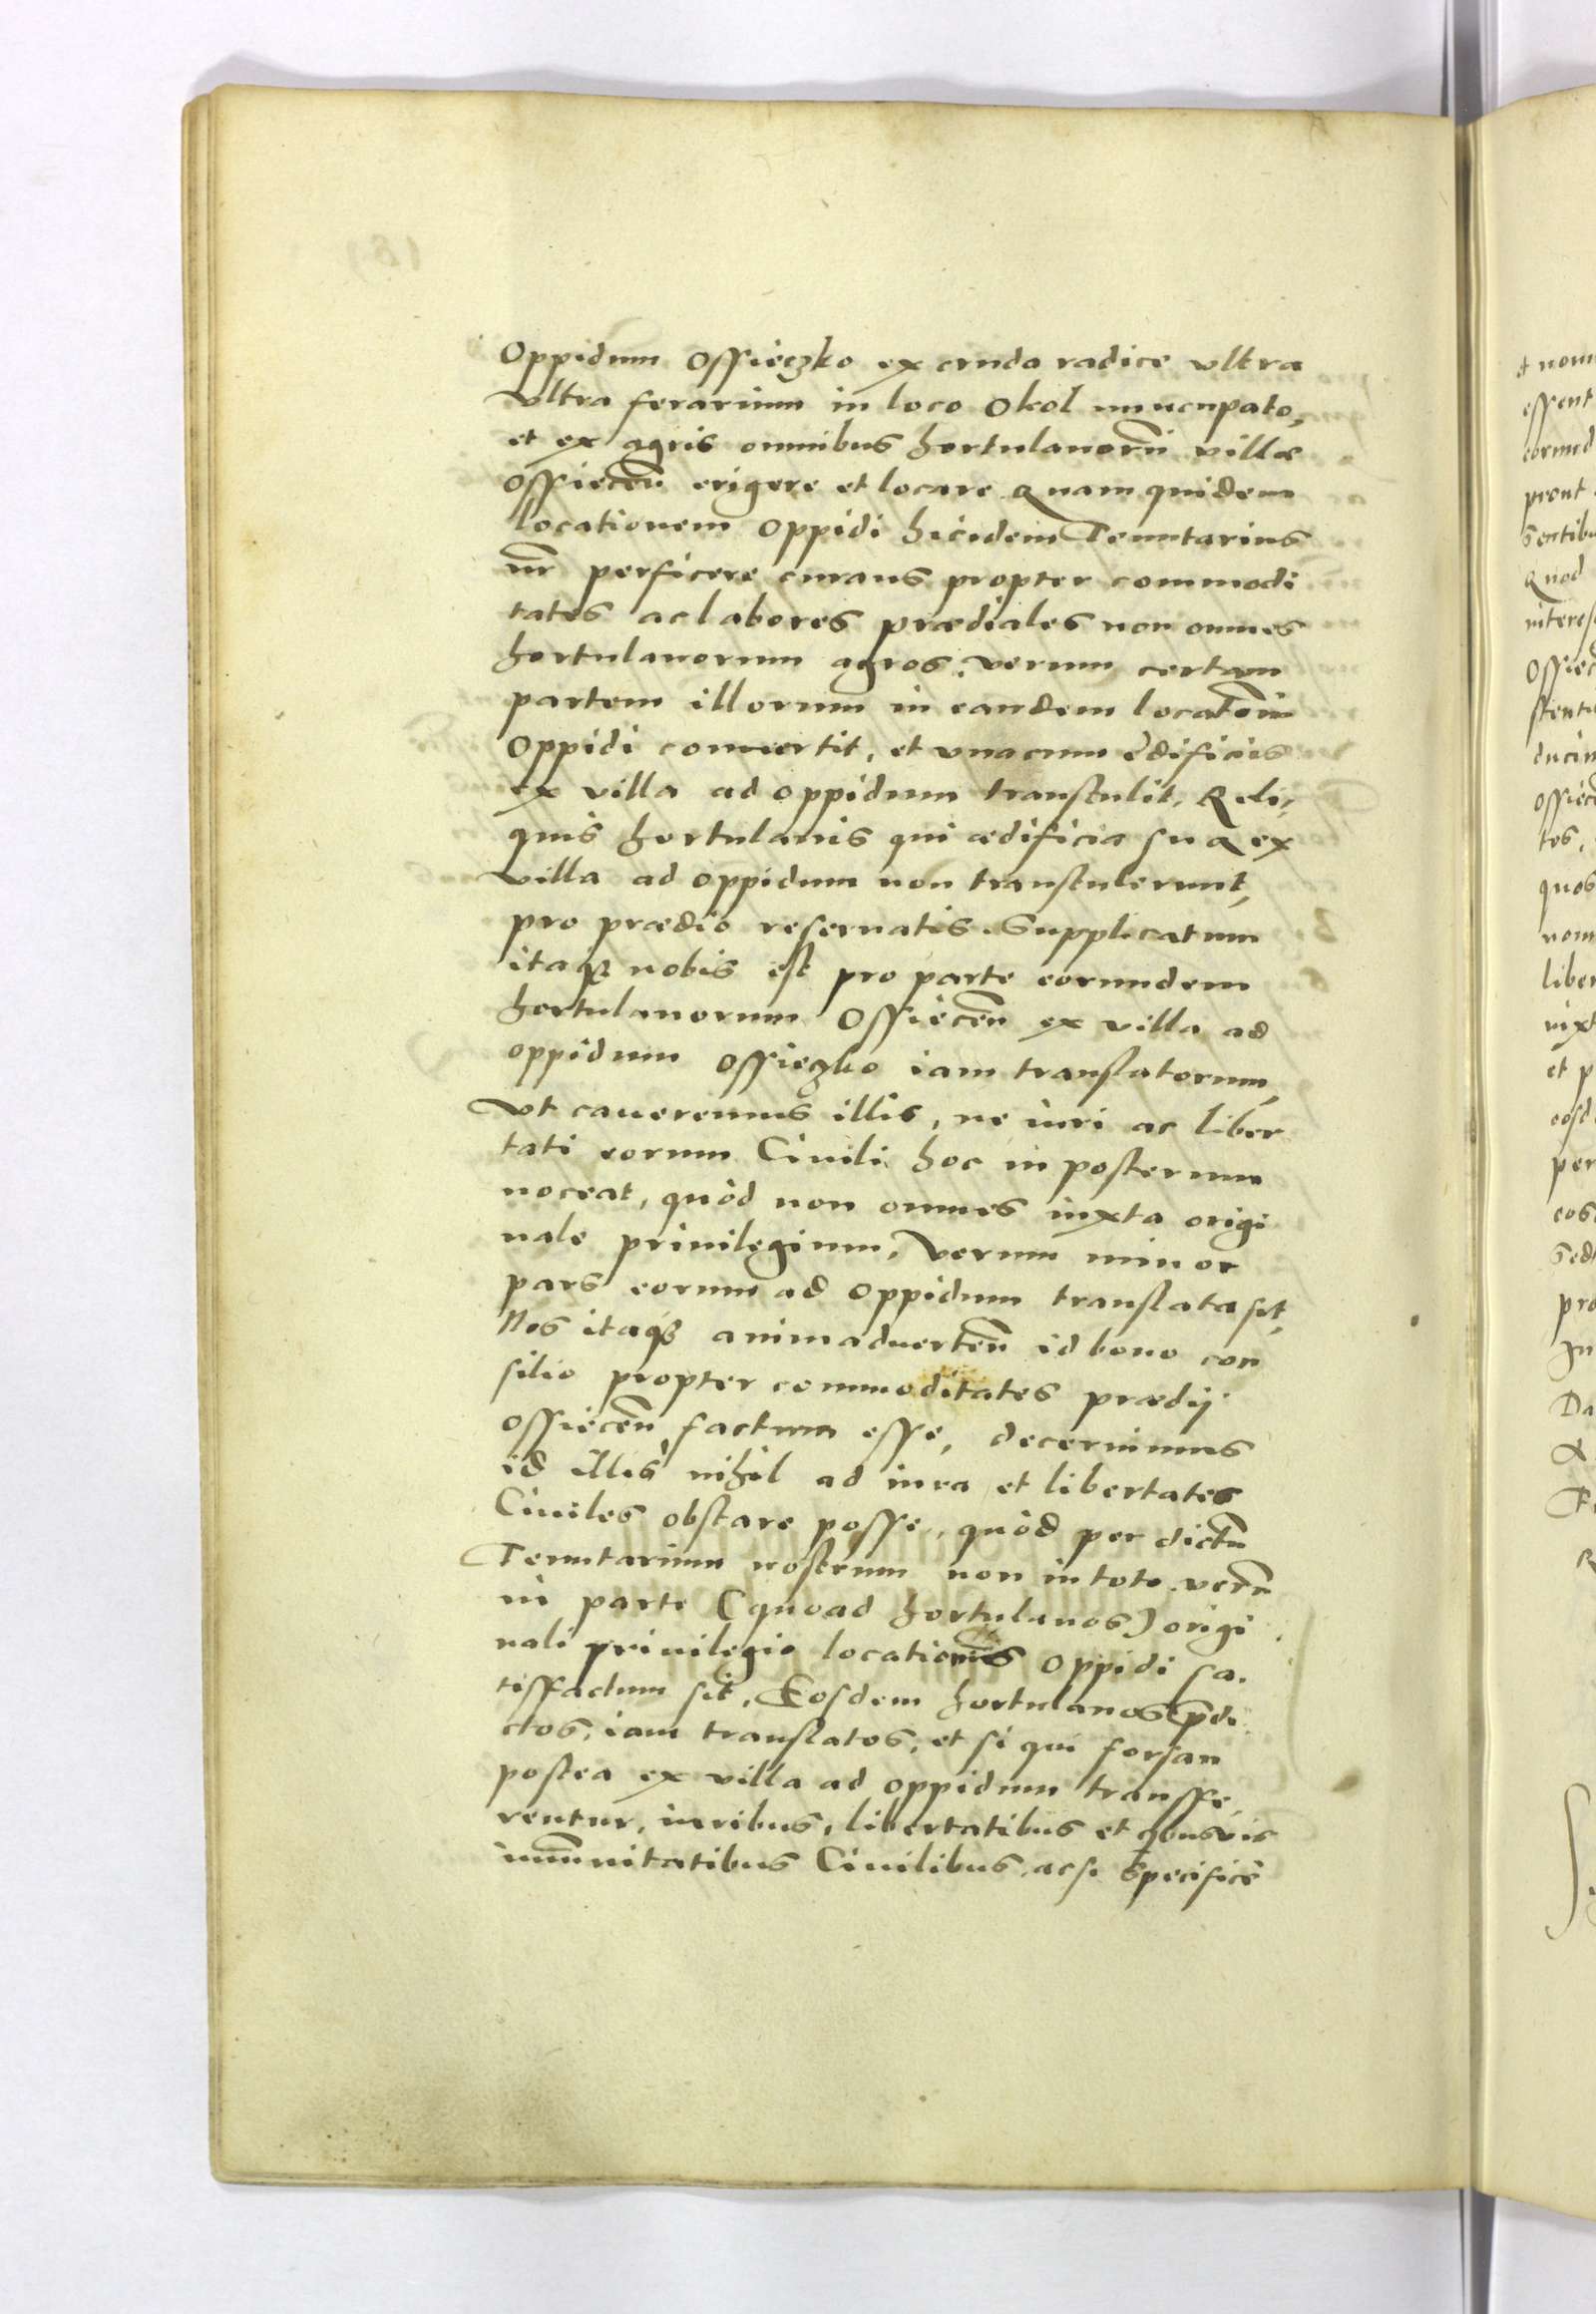 Oppidum Ossieczko ex cruda radice vltra
vltra ferarium in loco Okol nuncupato,
et ex agris omnibus hortulanorũ villæ
Ossieceñ erigere et locare. Quam quidem
locationem oppidi hicidem Tenutarius
nr̃ perficere curans propter commodi
tates ac labores prædiales non omnes
hortulanorum agros, verum certam
partem illorum in eandem locatõem
oppidi conuertit, et vnacum ędificiis
ex villa ad oppidum transtulit, Reli,
quis hortulanis qui ædificia sua ex
villa ad oppidum non transtulerunt,
pro prædio reseruatis. Supplicatum
itaq3 nobis est pro parte eorundem
hortulanorum Ossieceñ ex villa ad
oppidum Ossieczko iam translatorum,
vt caueremus illis, ne iuri ac liber
tati eorum Ciuili hoc in posterum
noceat, quòd non omnes iuxta origi
nale priuilegium, verum minor
pars eorum ad oppidum translata sit,
Nos itaq3 animaduerteñ id bono con
silio propter commoditates prædij
Ossieceñ factum esse, decernimus
id illis nihil ad iura et libertates
Ciuiles obstare posse, quòd per dictũ
Tenutarium nostrum non in toto verũ
in parte (quoad hortulanos) origi
nali priuilegio locationis oppidi sa.
tisfactum sit, Eosdem hortulanos p̃di
ctos, iam translatos, et si qui forsan
postea ex villa ad oppidum transfe,
rentur, iuribus, libertatibus et quibusuis
im̃unitatibus Ciuilibus, acsi specificè